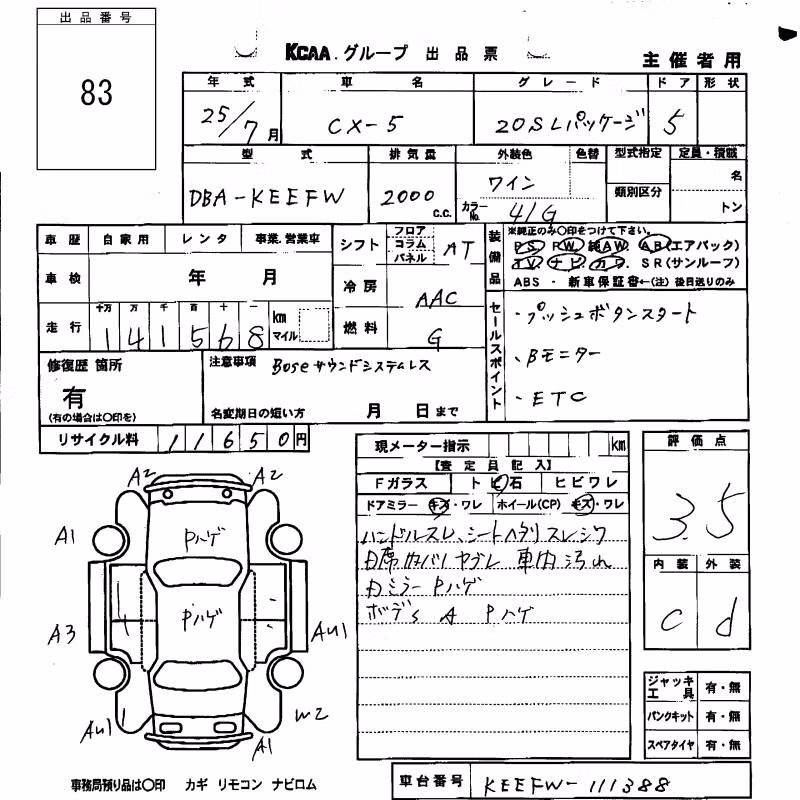 出品番号
83
KCAA.グループ 出品票
主催者用
年式 車名 グレード ドア 形状
25/7月 CX-5 20SLパッケージ 5
型式 排気量 外装色 色替 型式指定 定員・積載
DBA-KEEFW 2000 c.c. ワイン 類別区分 名
カラーNo. 41G トン
車歴 自家用 レンタ 事業.営業車
シフト フロア コラム パネル AT
装備品
※純正のみ〇印をつけて下さい。
PS PW AW AB(エアバック)
TV ナビ カワ SR(サンルーフ)
ABS ・ 新車保証書←(注) 後日送りのみ
車検 年 月
冷房 AAC
走行 十万 万 千 百 十 一
141568 km マイル
燃料 G
セールスポイント
・プッシュボタンスタート
・Bモニター
・ETC
修復歴 箇所
有
(有の場合は〇印を)
注意事項 Boseサウンドシステムレス
名変期日の短い方 月 日まで
リサイクル料 11650円
現メーター指示 km
【査定員記入】
Fガラス トビ石 ヒビワレ
ドアミラー キズ・ワレ ホイール(CP) キズ・ワレ
ハンドルスレ、シートヘタリスレシワ
車内汚れ
ミラー Pハゲ
A Pハゲ
評価点
3.5
内装 外装
C d
A2 A2
A1
Pハゲ
Pハゲ
A3
AU1
AU1
W2
A1
ジャッキ工具 有・無
パンクキット 有・無
スペアタイヤ 有・無
事務局預り品は〇印 カギ リモコン ナビロム
車台番号 KEEFW-111388